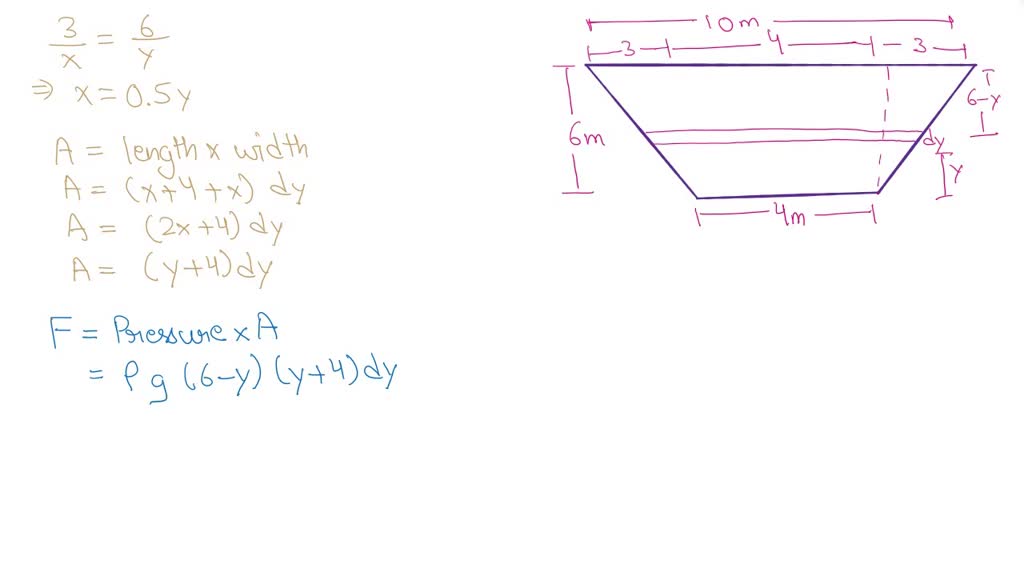 3/x = 6/y
⇒ x = 0.5y
A = length x width
A = (x+4+x) dy
A = (2x+4) dy
A = (y+4) dy
F = Pressure x A
= ρg (6-y) (y+4) dy
10m
3 4 3
6m
6-y
dy
y
4m